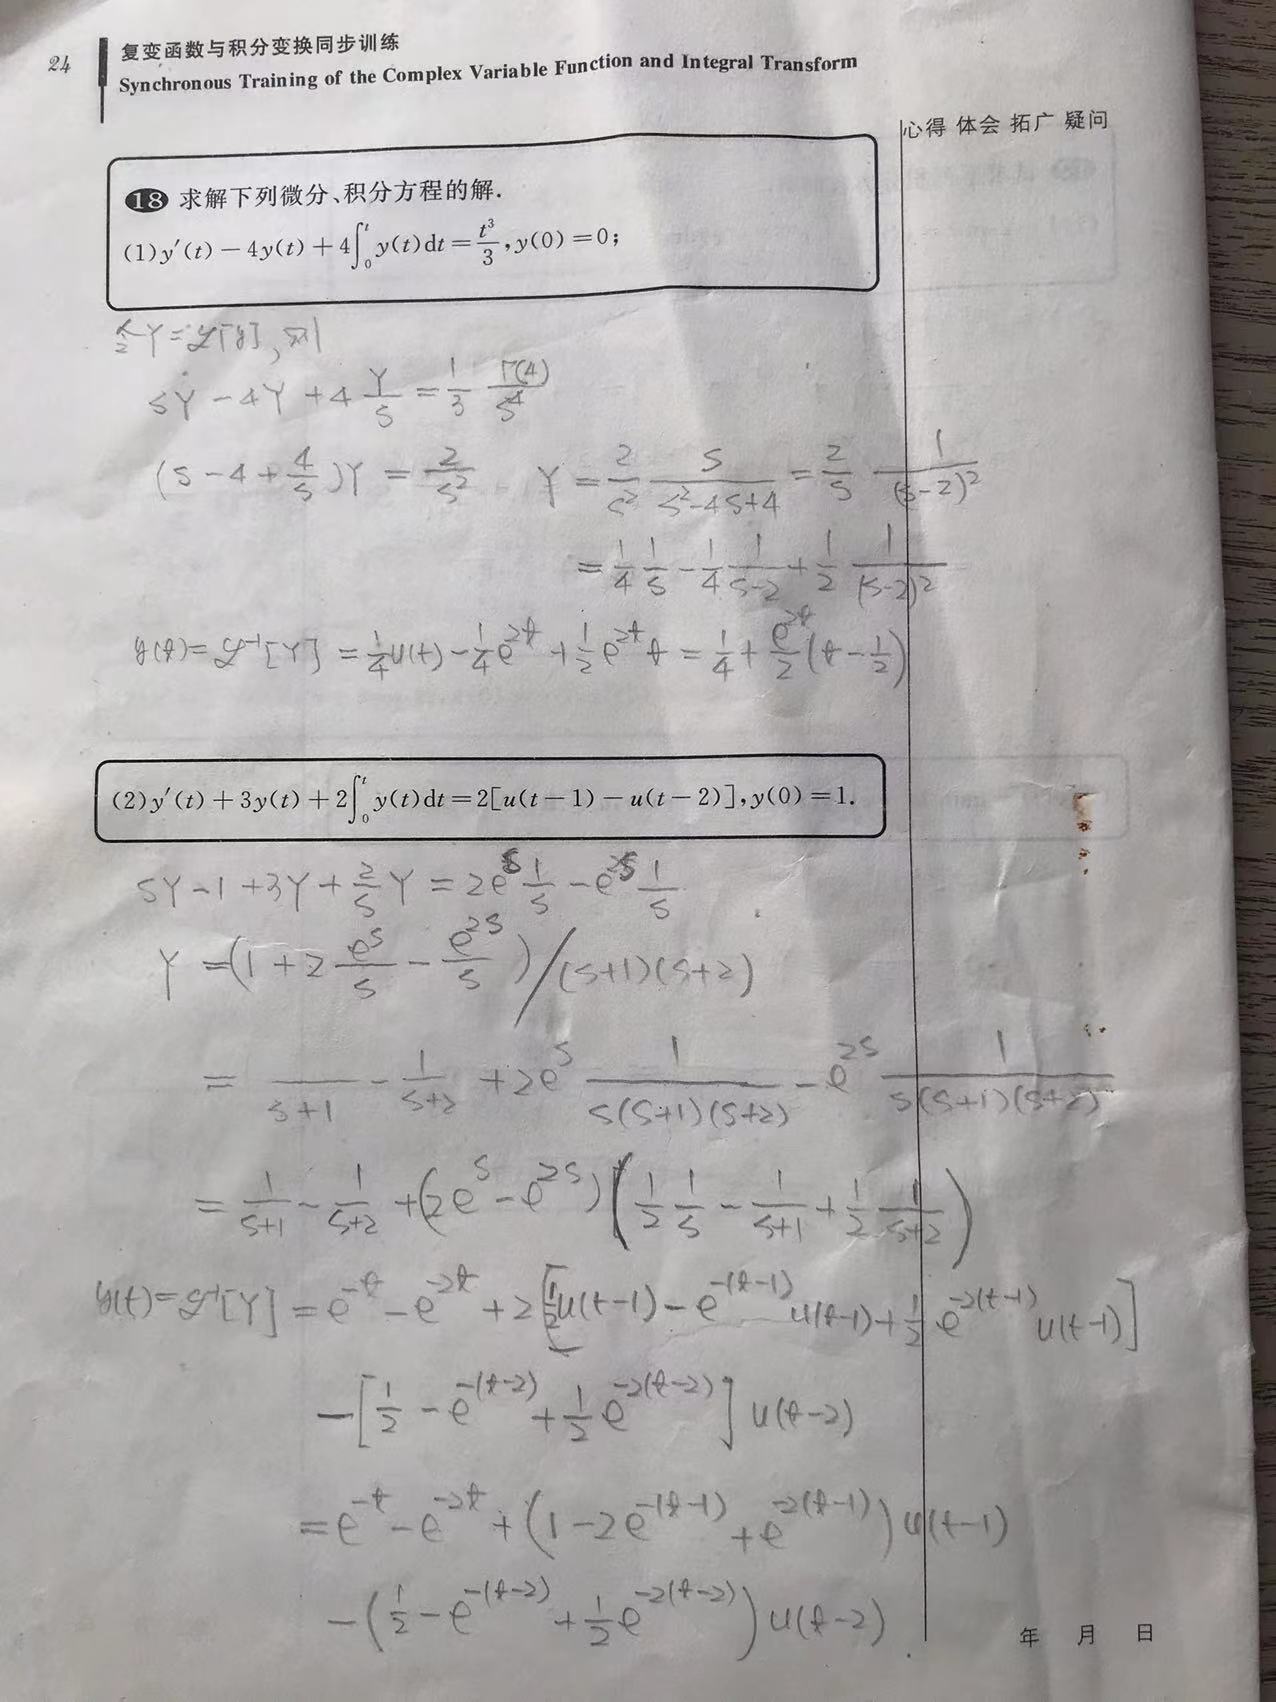 24
复变函数与积分变换同步训练
Synchronous Training of the Complex Variable Function and Integral Transform
心得 体会 拓广 疑问
18 求解下列微分、积分方程的解.
(1) y′(t) − 4y(t) + 4∫₀ᵗ y(t)dt = t³/3, y(0) = 0;
令 Y = ℒ[y], 则
sY − 4Y + 4 Y/s = 1/3 Γ(4)/s⁴
(s − 4 + 4/s)Y = 2/s² Y = 2/s² s/(s²−4s+4) = 2/s 1/(s−2)²
= 1/4 1/s − 1/4 1/(s−2) + 1/2 1/(s−2)²
y(t) = ℒ⁻¹[Y] = 1/4 u(t) − 1/4 e^(2t) + 1/2 e^(2t) t = 1/4 + e^(2t)/2 (t − 1/2)
(2) y′(t) + 3y(t) + 2∫₀ᵗ y(t)dt = 2[u(t−1) − u(t−2)], y(0) = 1.
sY − 1 + 3Y + 2/s Y = 2e^s 1/s − e^(2s) 1/s
Y = (1 + 2 e^s/s − e^(2s)/s) / (s+1)(s+2)
= /(s+1) − 1/(s+2) + 2e^s 1/(s(s+1)(s+2)) − e^(2s) 1/(s(s+1)(s+2))
= 1/(s+1) − 1/(s+2) + (2e^s − e^(2s)) (1/2 1/s − 1/(s+1) + 1/2 1/(s+2))
y(t) = ℒ⁻¹[Y] = e^(−t) − e^(−2t) + 2[1/2 u(t−1) − e^(−(t−1)) u(t−1) + 1/2 e^(−2(t−1)) u(t−1)]
− [1/2 − e^(−(t−2)) + 1/2 e^(−2(t−2))] u(t−2)
= e^(−t) − e^(−2t) + (1 − 2e^(−(t−1)) + e^(−2(t−1))) u(t−1)
− (1/2 − e^(−(t−2)) + 1/2 e^(−2(t−2))) u(t−2)
年 月 日